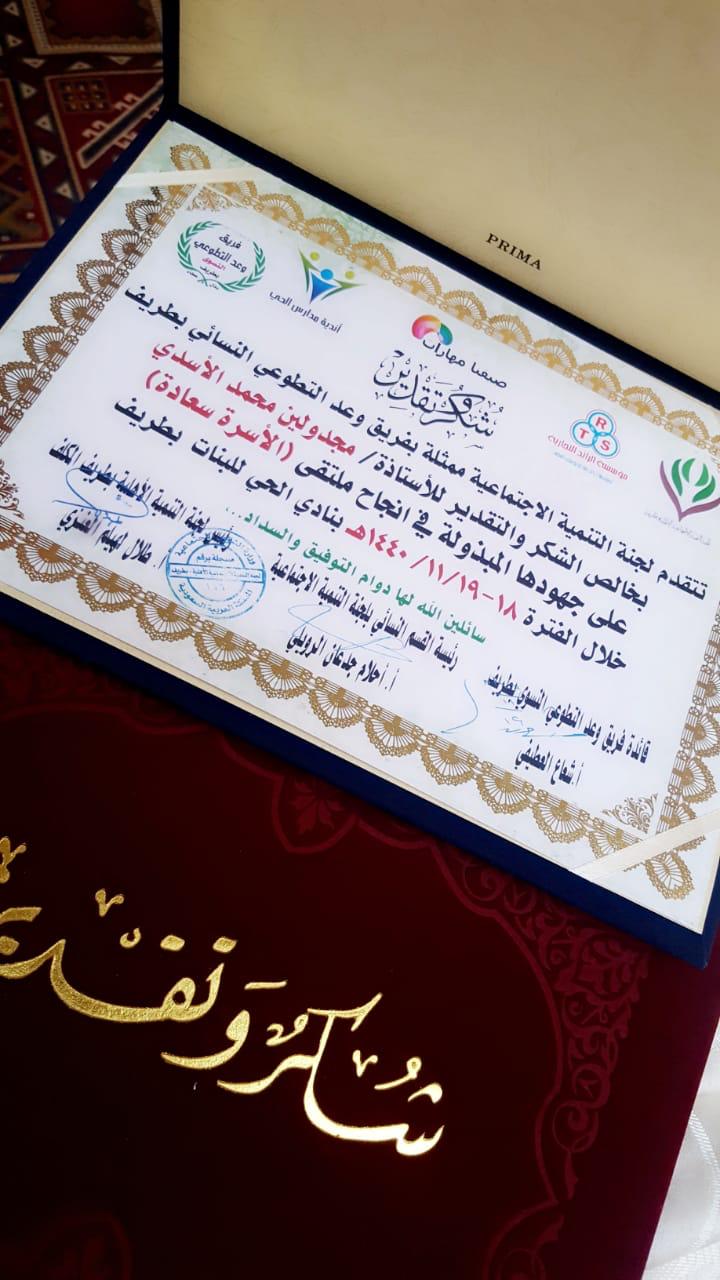 PRIMA
فريق
وعد التطوعي
النسوي
بطريف
أندية مدارس الحي
صيفنا مهارات
RTS
مؤسسة الرائد التجارية
شكر وتقدير
تتقدم لجنة التنمية الاجتماعية ممثلة بفريق وعد التطوعي النسائي بطريف
بخالص الشكر والتقدير للأستاذة/ مجدولين محمد الأسدي
على جهودها المبذولة في انجاح ملتقى (الأسرة سعادة)
خلال الفترة ١٨-١٤٤٠/١١/١٩هـ بنادي الحي للبنات بطريف
سائلين الله لها دوام التوفيق والسداد...
قائدة فريق وعد التطوعي النسوي بطريف
أ.شعاع العطيفي
رئيسة القسم النسائي بلجنة التنمية الاجتماعية
أ. أحلام جدعان الرويلي
رئيس لجنة التنمية الأهلية بطريف المكلف
طلال لهيم العنزي
مسجلة برقم
المملكة العربية السعودية
شكر وتقدير